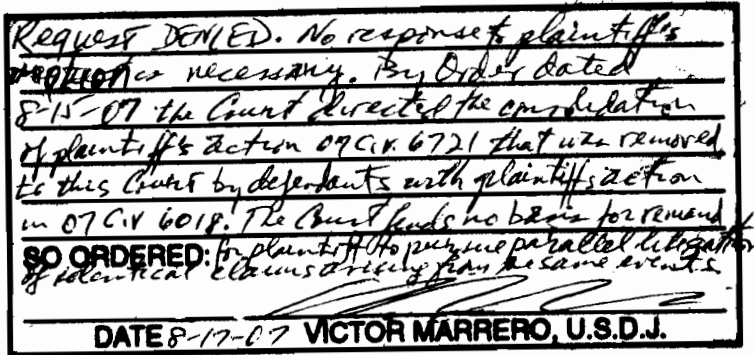 Request DENIED. No response to plaintiff's
motion is necessary. By Order dated
8-15-07 the Court directed the consolidation
of plaintiff's action 07 Civ. 6721 that was removed
to this Court by defendants with plaintiff's action
in 07 Civ 6018. The Court finds no basis for remand
SO ORDERED: for plaintiff to pursue parallel litigation
of identical claims arising from the same events.
DATE 8-17-07 VICTOR MARRERO, U.S.D.J.